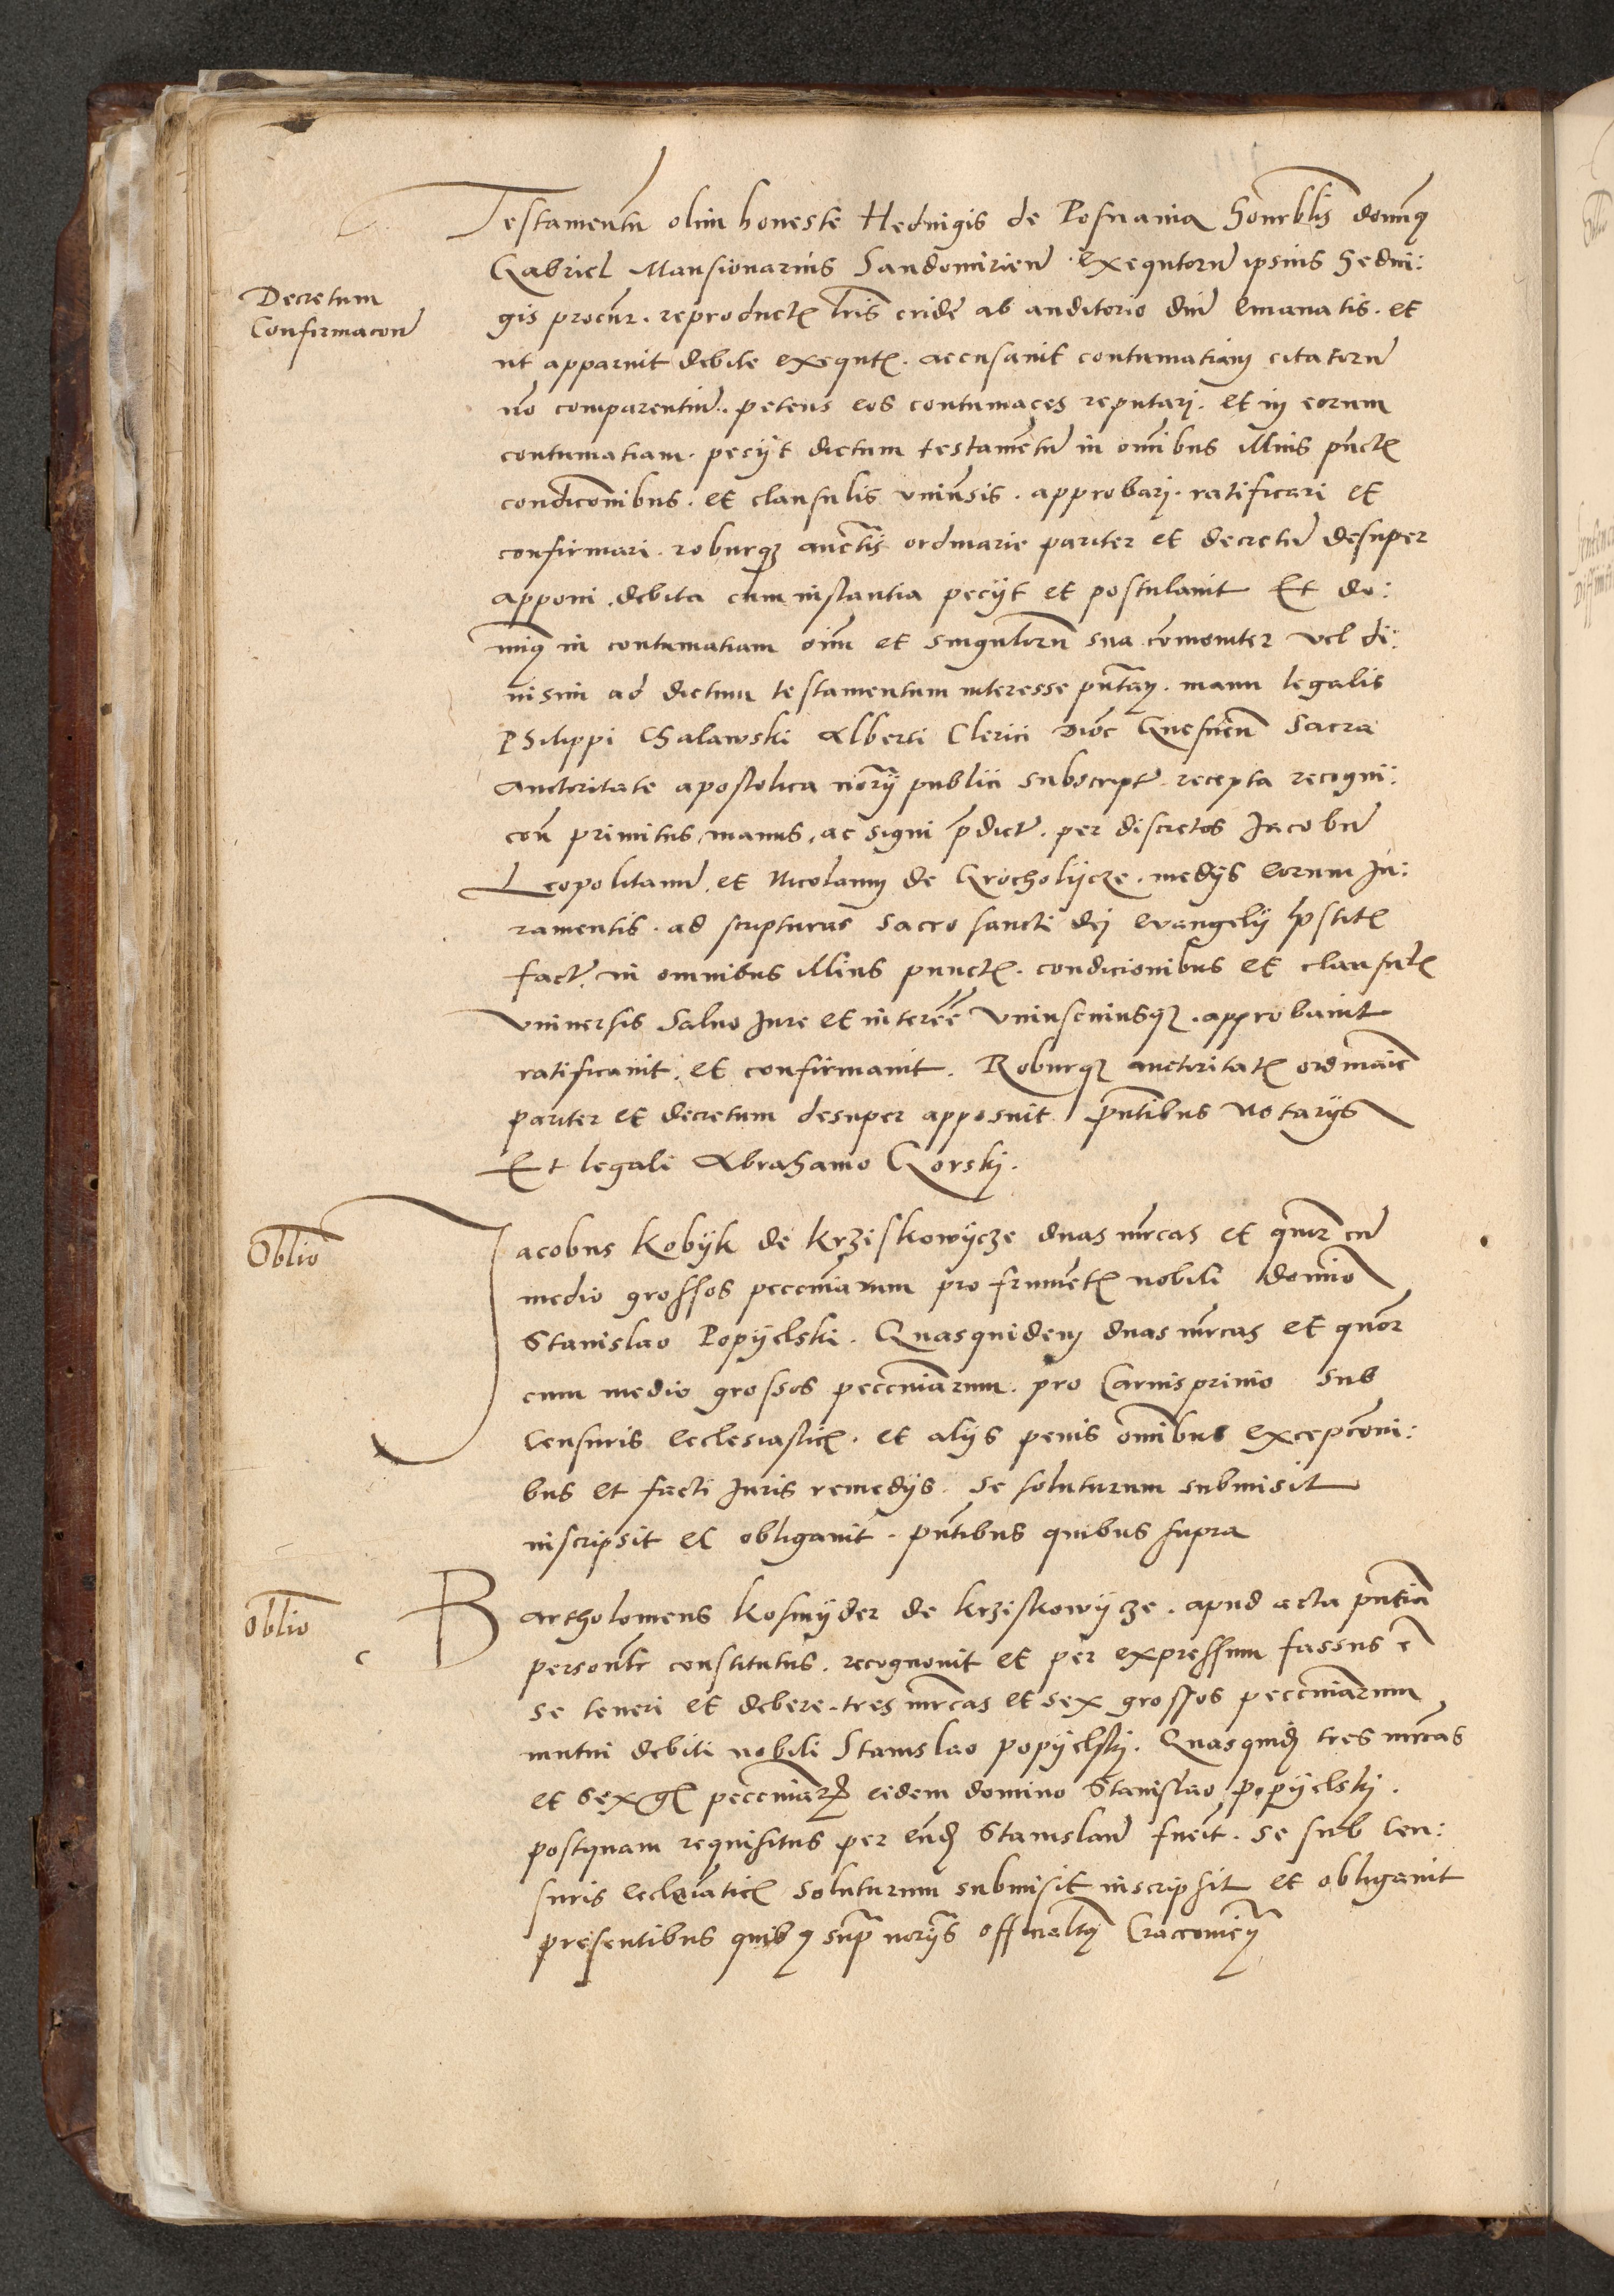 Testamentu olim honeste Hedvigis de Posnania Honrblis domnq
Gabriel Mansionarius Sandomirien exequtoru ipsius Hedvi:
Decretum
Confirmacon
gis procur. reproductis lris eride ab auditorio dni emanatis. et
ut apparuit debite exequt. accusavit contumatiam citatoru
no comparentiu. petens eos contumaces reputari. et in eorum
contumatiam. peciit dictum testamentu in omibus illius punct
condicionibus. et clausulis universis. approbari. ratificari et
confirmari. roburq auctis ordinarie pariter et decretu desuper
apponi. debita cum instantia peciit et postulavit Et do:
minq in contumatiam oim et singuloru sua comoniter vel di:
visim ad dictum testamentum interesse putan. manu legalis
Philippi Chalawski Alberti Clerici dioc Gnesnen Sacra
Auctoritate apostolica norij publici subscript. recepta recogni:
con primitus, manus, ac signi pdict. per discretos Jacobu
Leopolitanu. et Nicolaum de Grocholijcze. medijs eorum Ju:
ramentis. ad scripturas sacro sancti dei evangelij pstit
fact. in omnibus illius punct. condicionibus et clausul
Universis Salvo Jure et interee Uniuscuiusq. approbavit
ratificavit. et confirmavit. Roburq auctoritat ordinaie
pariter et decretum desuper apposuit. pntibus Notarijs
Et legali Abrahamo Gorskj.
Oblio
Jacobus Kobijk de Krziskowijcze duas mrcas et qtuor cu
medio grossos peccuniarum pro frument nobili domio
Stanislao Popijelski. Quasquidem duas mrcas et qtuor
cum medio grossos peccuniarum. pro Carnisprivio sub
Censuris ecclesiastic. et alijs penis omibus excepconi:
bus et facti Juris remedijs. se soluturum submisit
inscripsit et obligavit. pntibus quibus supra
Oblio
Bartholomeus Kosmijder de Krziskowijcze. apud acta pntia
personlr constitutus. recognovit et per expressum fassus e
se teneri et debere. tres mrcas et sex grossos peccuniarum
mutui debiti nobili Stanislao popijelskj. Quasquid tres mrcas
et sex g peccuniar eidem domino Stanislao popijelskj.
postquam requisitus per eund Stanislau fueit. se sub Cen:
suris ecclesiastic soluturum submisit inscripsit et obligavit
presentibus quib9 supra norijs officialtq Cracovien